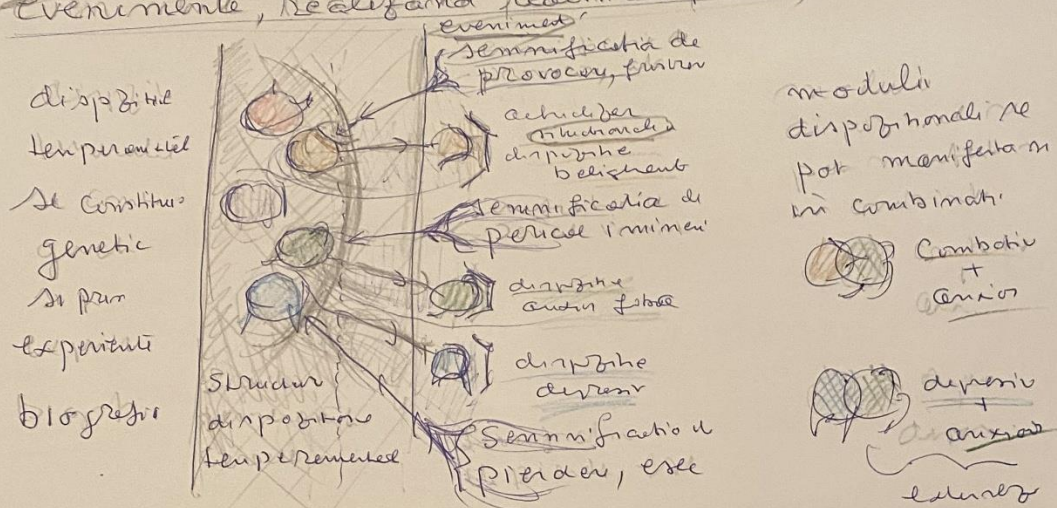 evenimente, realizând
dispoziții
temperamental
se constitue
genetic
si prin
experiente
biografi
Structur
dispozitione
temperamental
eveniment
semnificatia de
provocare, frustrar
actualizar
situationala
dispozitie
beligeranta
semnificatia de
pericol iminent
dispozitie
depresiv
Semnificatia d
pierder, esec
modulii
dispozitionali se
pot manifesta si
in combinati
Combativ
+
anxios
depresiv
+
anxios